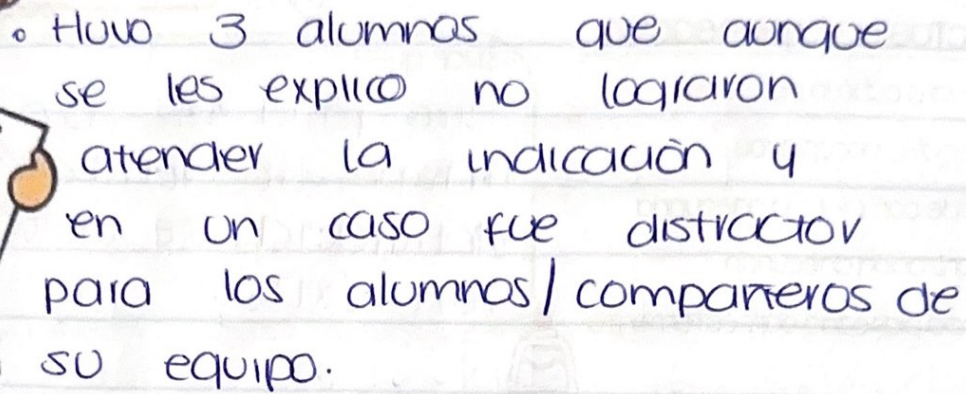 • Huvo 3 alumnos que aunque
se les explico no lograron
atender la indicación y
en un caso fue distractor
para los alumnos/compañeros de
su equipo.